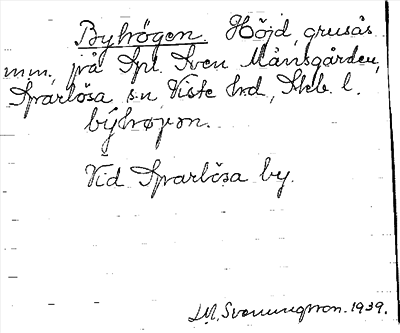 Byhögen. Höjd, grusås
m.m., på Spl. Sven Månsgården,
Sparlösa sn, Viste hd, Skb. l.
býhøgən.
Vid Sparlösa by.
M. Svenungsson. 1939.